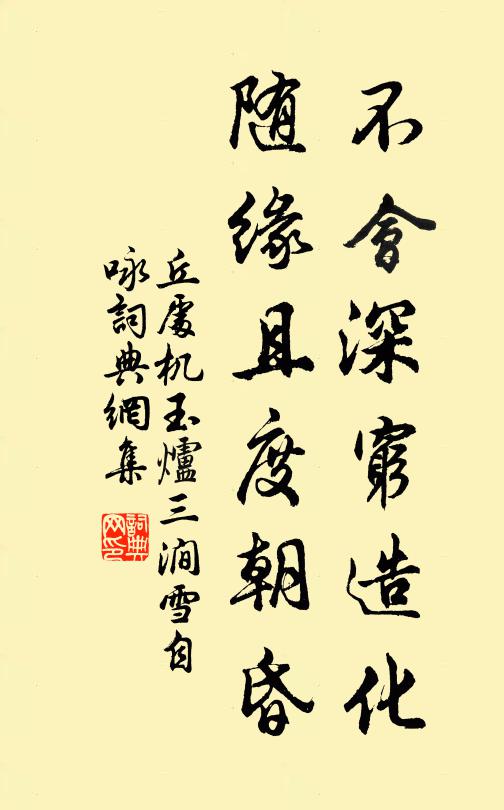 不會深窮造化
随緣且度朝昏
丘處机玉爐三澗雪自
咏詞典網集
詞典
网印